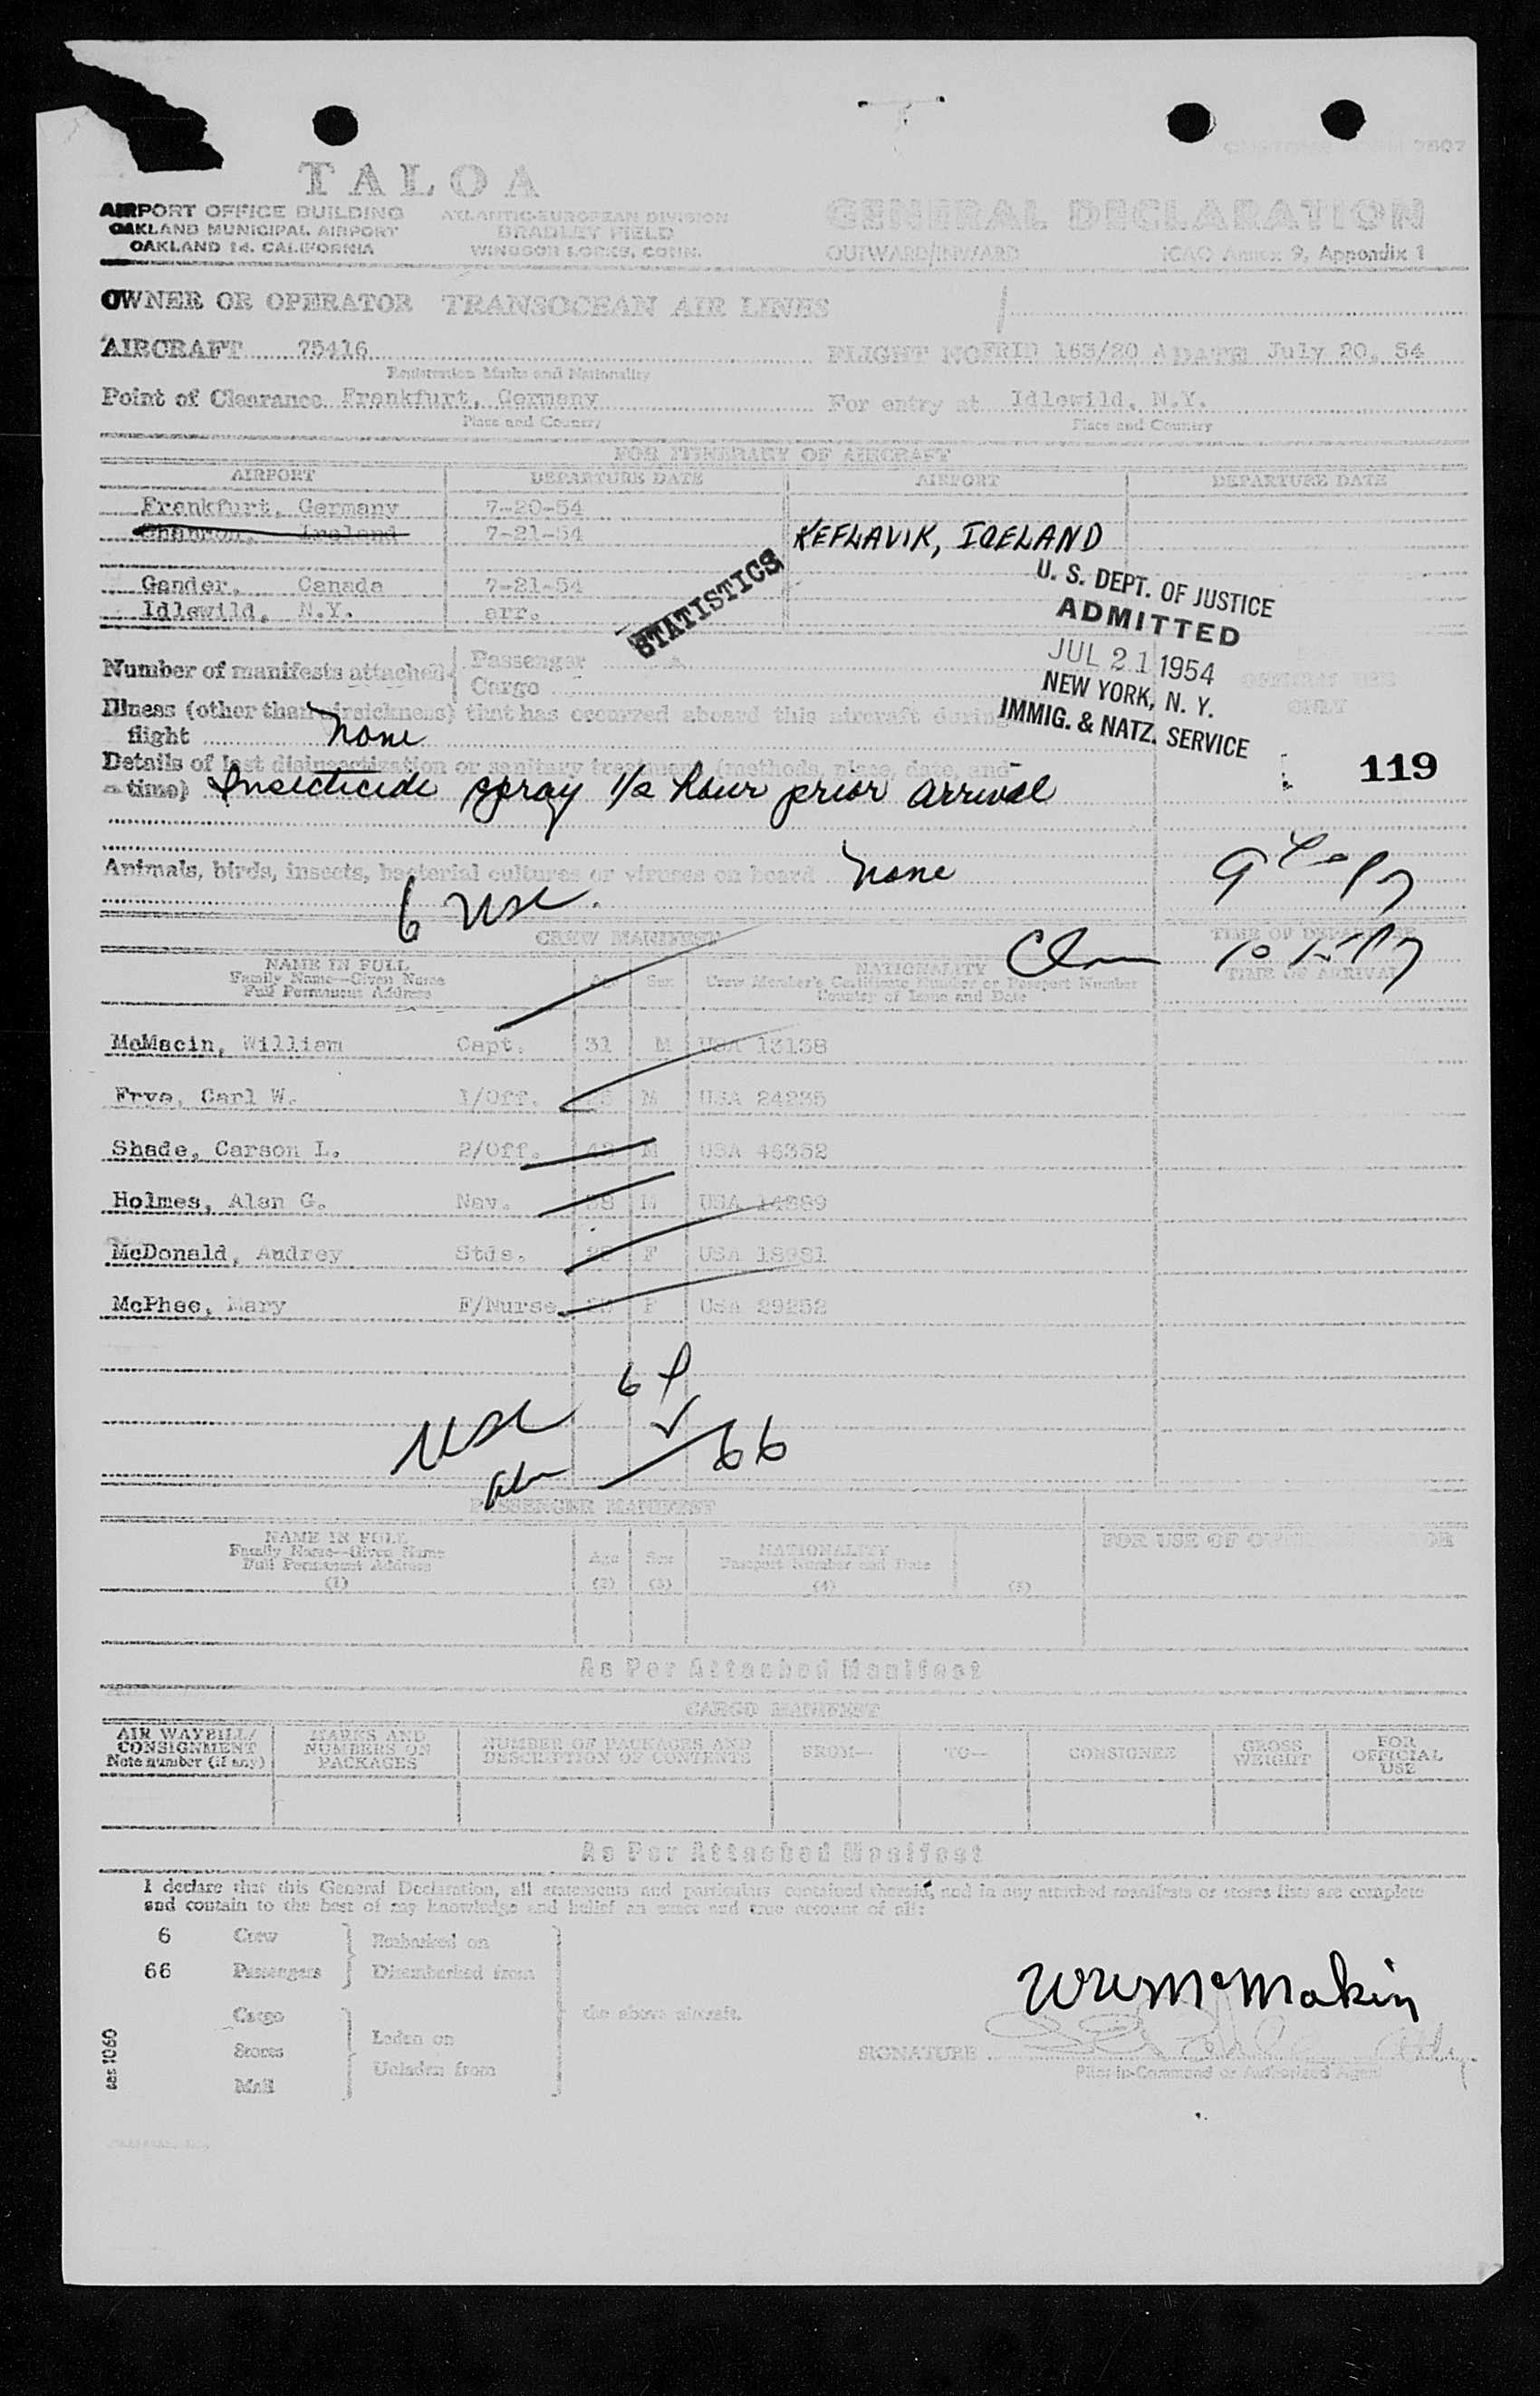 CUSTOMS FORM 7507
TALOA
AIRPORT OFFICE BUILDING
OAKLAND MUNICIPAL AIRPORT
OAKLAND 14, CALIFORNIA
ATLANTIC-EUROPEAN DIVISION
BRADLEY FIELD
WINDSOR LOCKS, CONN.
GENERAL DECLARATION
OUTWARD/INWARD ICAO Annex 9, Appendix 1
OWNER OR OPERATOR TRANSOCEAN AIR LINES
AIRCRAFT 75416 FLIGHT NO FRID 163/20 A DATE July 20, 54
Registration Marks and Nationality
Point of Clearance Frankfurt, Germany For entry at Idlewild, N.Y.
Place and Country Place and Country
FOR ITINERARY OF AIRCRAFT
AIRPORT DEPARTURE DATE AIRPORT DEPARTURE DATE
Frankfurt, Germany 7-20-54
Shannon, Ireland 7-21-54 KEFLAVIK, ICELAND
Gander, Canada 7-21-54
Idlewild, N.Y. arr.
STATISTICS
U. S. DEPT. OF JUSTICE
ADMITTED
JUL 21 1954
NEW YORK, N. Y.
IMMIG. & NATZ. SERVICE
Number of manifests attached Passenger
Cargo
OFFICIAL USE
ONLY
Illness (other than airsickness) that has occurred aboard this aircraft during
flight None
Details of last disinsectization or sanitary treatment (methods, place, date, and
time) Insecticide spray 1/2 hour prior arrival
119
Animals, birds, insects, bacterial cultures or viruses on board None
6 USC.
CREW MANIFEST
TIME OF DEPARTURE
TIME OF ARRIVAL
NAME IN FULL
Family Name—Given Name
Full Permanent Address
Age Sex
NATIONALITY
Crew Member's Certificate Number or Passport Number
Country of Issue and Date
McMacin, William Capt. 31 M USA 13158
Frye, Carl W. 1/Off. M USA 24235
Shade, Carson L. 2/Off. M USA 46352
Holmes, Alan G. Nav. 38 M USA 14889
McDonald, Audrey Stds. F USA 18981
McPhee, Mary F/Nurse F USA 29252
6
USC
66
PASSENGER MANIFEST
NAME IN FULL
Family Name—Given Name
Full Permanent Address
(1)
Age
(2)
Sex
(3)
NATIONALITY
Passport Number and Date
(4)
(5)
FOR USE OF
As Per Attached Manifest
CARGO MANIFEST
AIR WAYBILL/
CONSIGNMENT
Note number (if any)
MARKS AND
NUMBERS ON
PACKAGES
NUMBER OF PACKAGES AND
DESCRIPTION OF CONTENTS
FROM—
TO—
CONSIGNEE
GROSS
WEIGHT
FOR
OFFICIAL
USE
As Per Attached Manifest
I declare that this General Declaration, all statements and particulars contained therein, and in any attached manifests or stores lists are complete
and contain to the best of my knowledge and belief an exact and true account of all:
6 Crew Embarked on
66 Passengers Disembarked from
Cargo the above aircraft.
Stores Laden on
Mail Unladen from
Wm McMakin
SIGNATURE
Pilot-in-Command or Authorized Agent
cas 1060